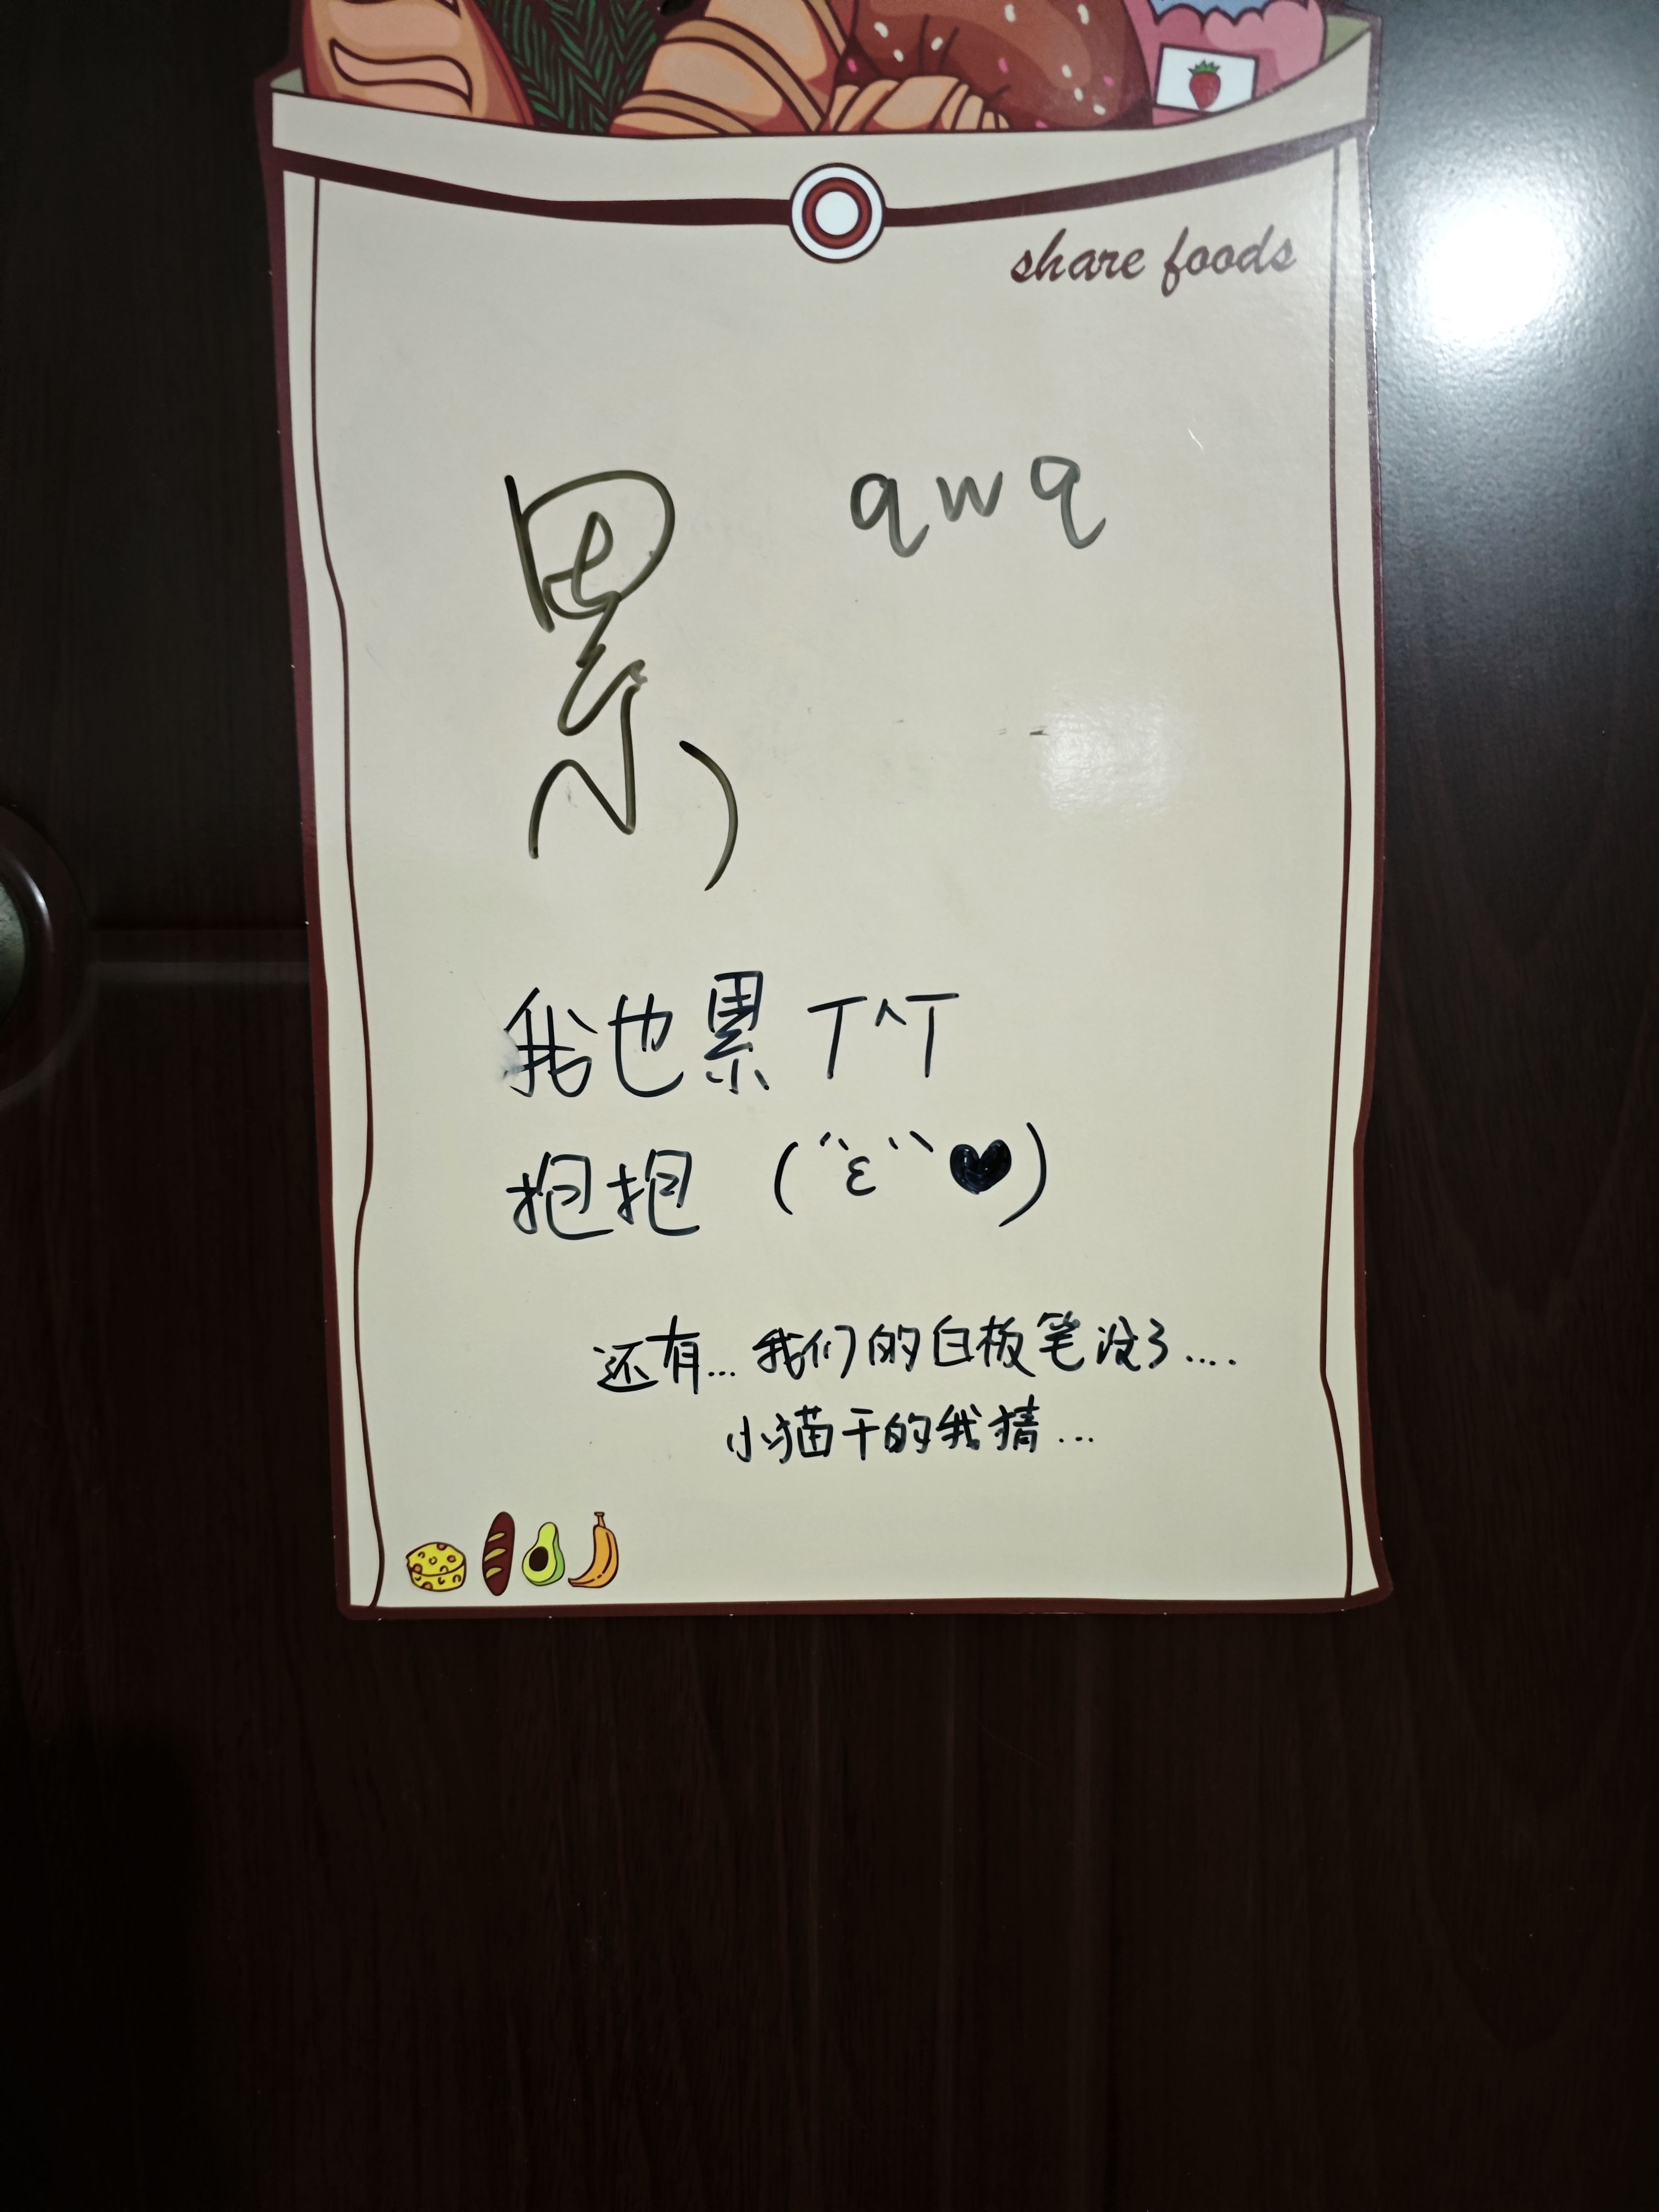 share foods
累 qwq
我也累 T^T
抱抱 (´´ε``♥)
还有...我们的白板笔没了....
小猫干的我猜...